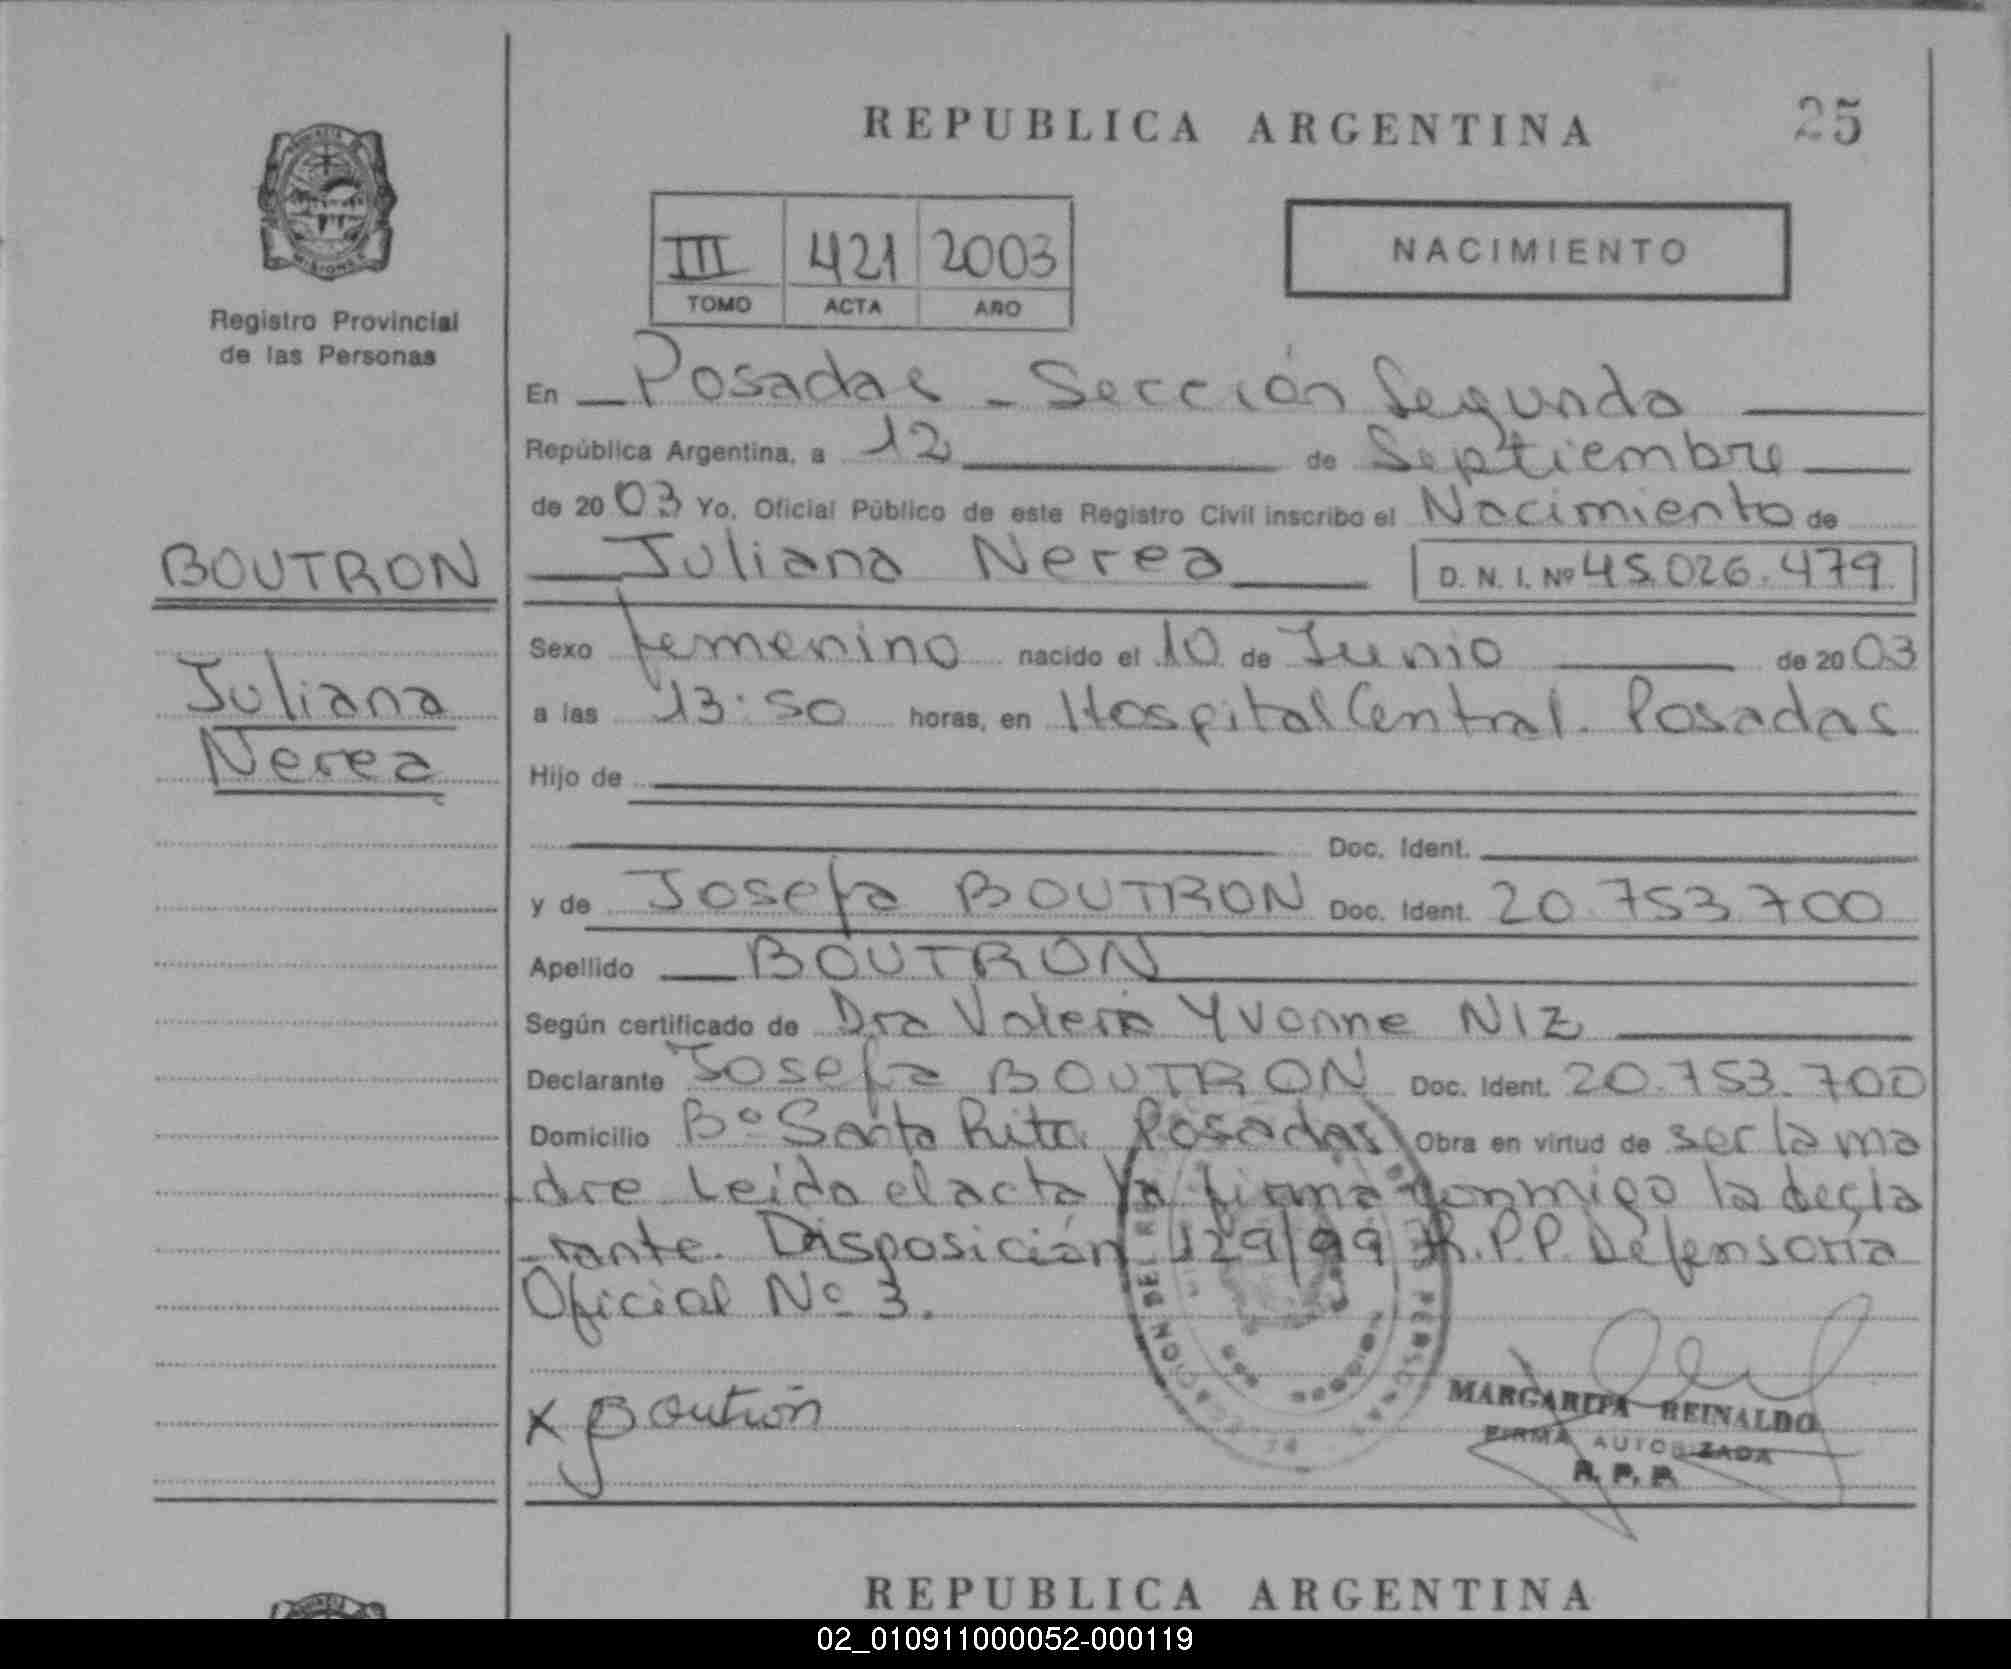 REPUBLICA ARGENTINA
25
III 421 2003
TOMO ACTA AÑO
NACIMIENTO
MISIONES
Registro Provincial
de las Personas
En Posadas - Sección Segunda
República Argentina, a 12 de Septiembre
de 2003 Yo, Oficial Público de este Registro Civil inscribo el Nacimiento de
BOUTRON
Juliana Nerea D. N. I. Nº 45.026.479
Sexo femenino nacido el 10 de Junio de 2003
Juliana
Nerea
a las 13:50 horas, en Hospital Central. Posadas
Hijo de
Doc. Ident.
y de Josefa BOUTRON Doc. Ident. 20.753.700
Apellido BOUTRON
Según certificado de Dra Valeria Yvonne NIZ
Declarante Josefa BOUTRON Doc. Ident. 20.753.700
Domicilio Bº Santa Rita. Posadas Obra en virtud de ser la ma
dre Leida el acta la firma conmigo la decla
rante. Disposición 129/99 R.P.P. Defensoria
Oficial Nº 3.
x Boutron
MARGARITA REINALDO
FIRMA AUTORIZADA
R. P. P.
REPUBLICA ARGENTINA
02_010911000052-000119